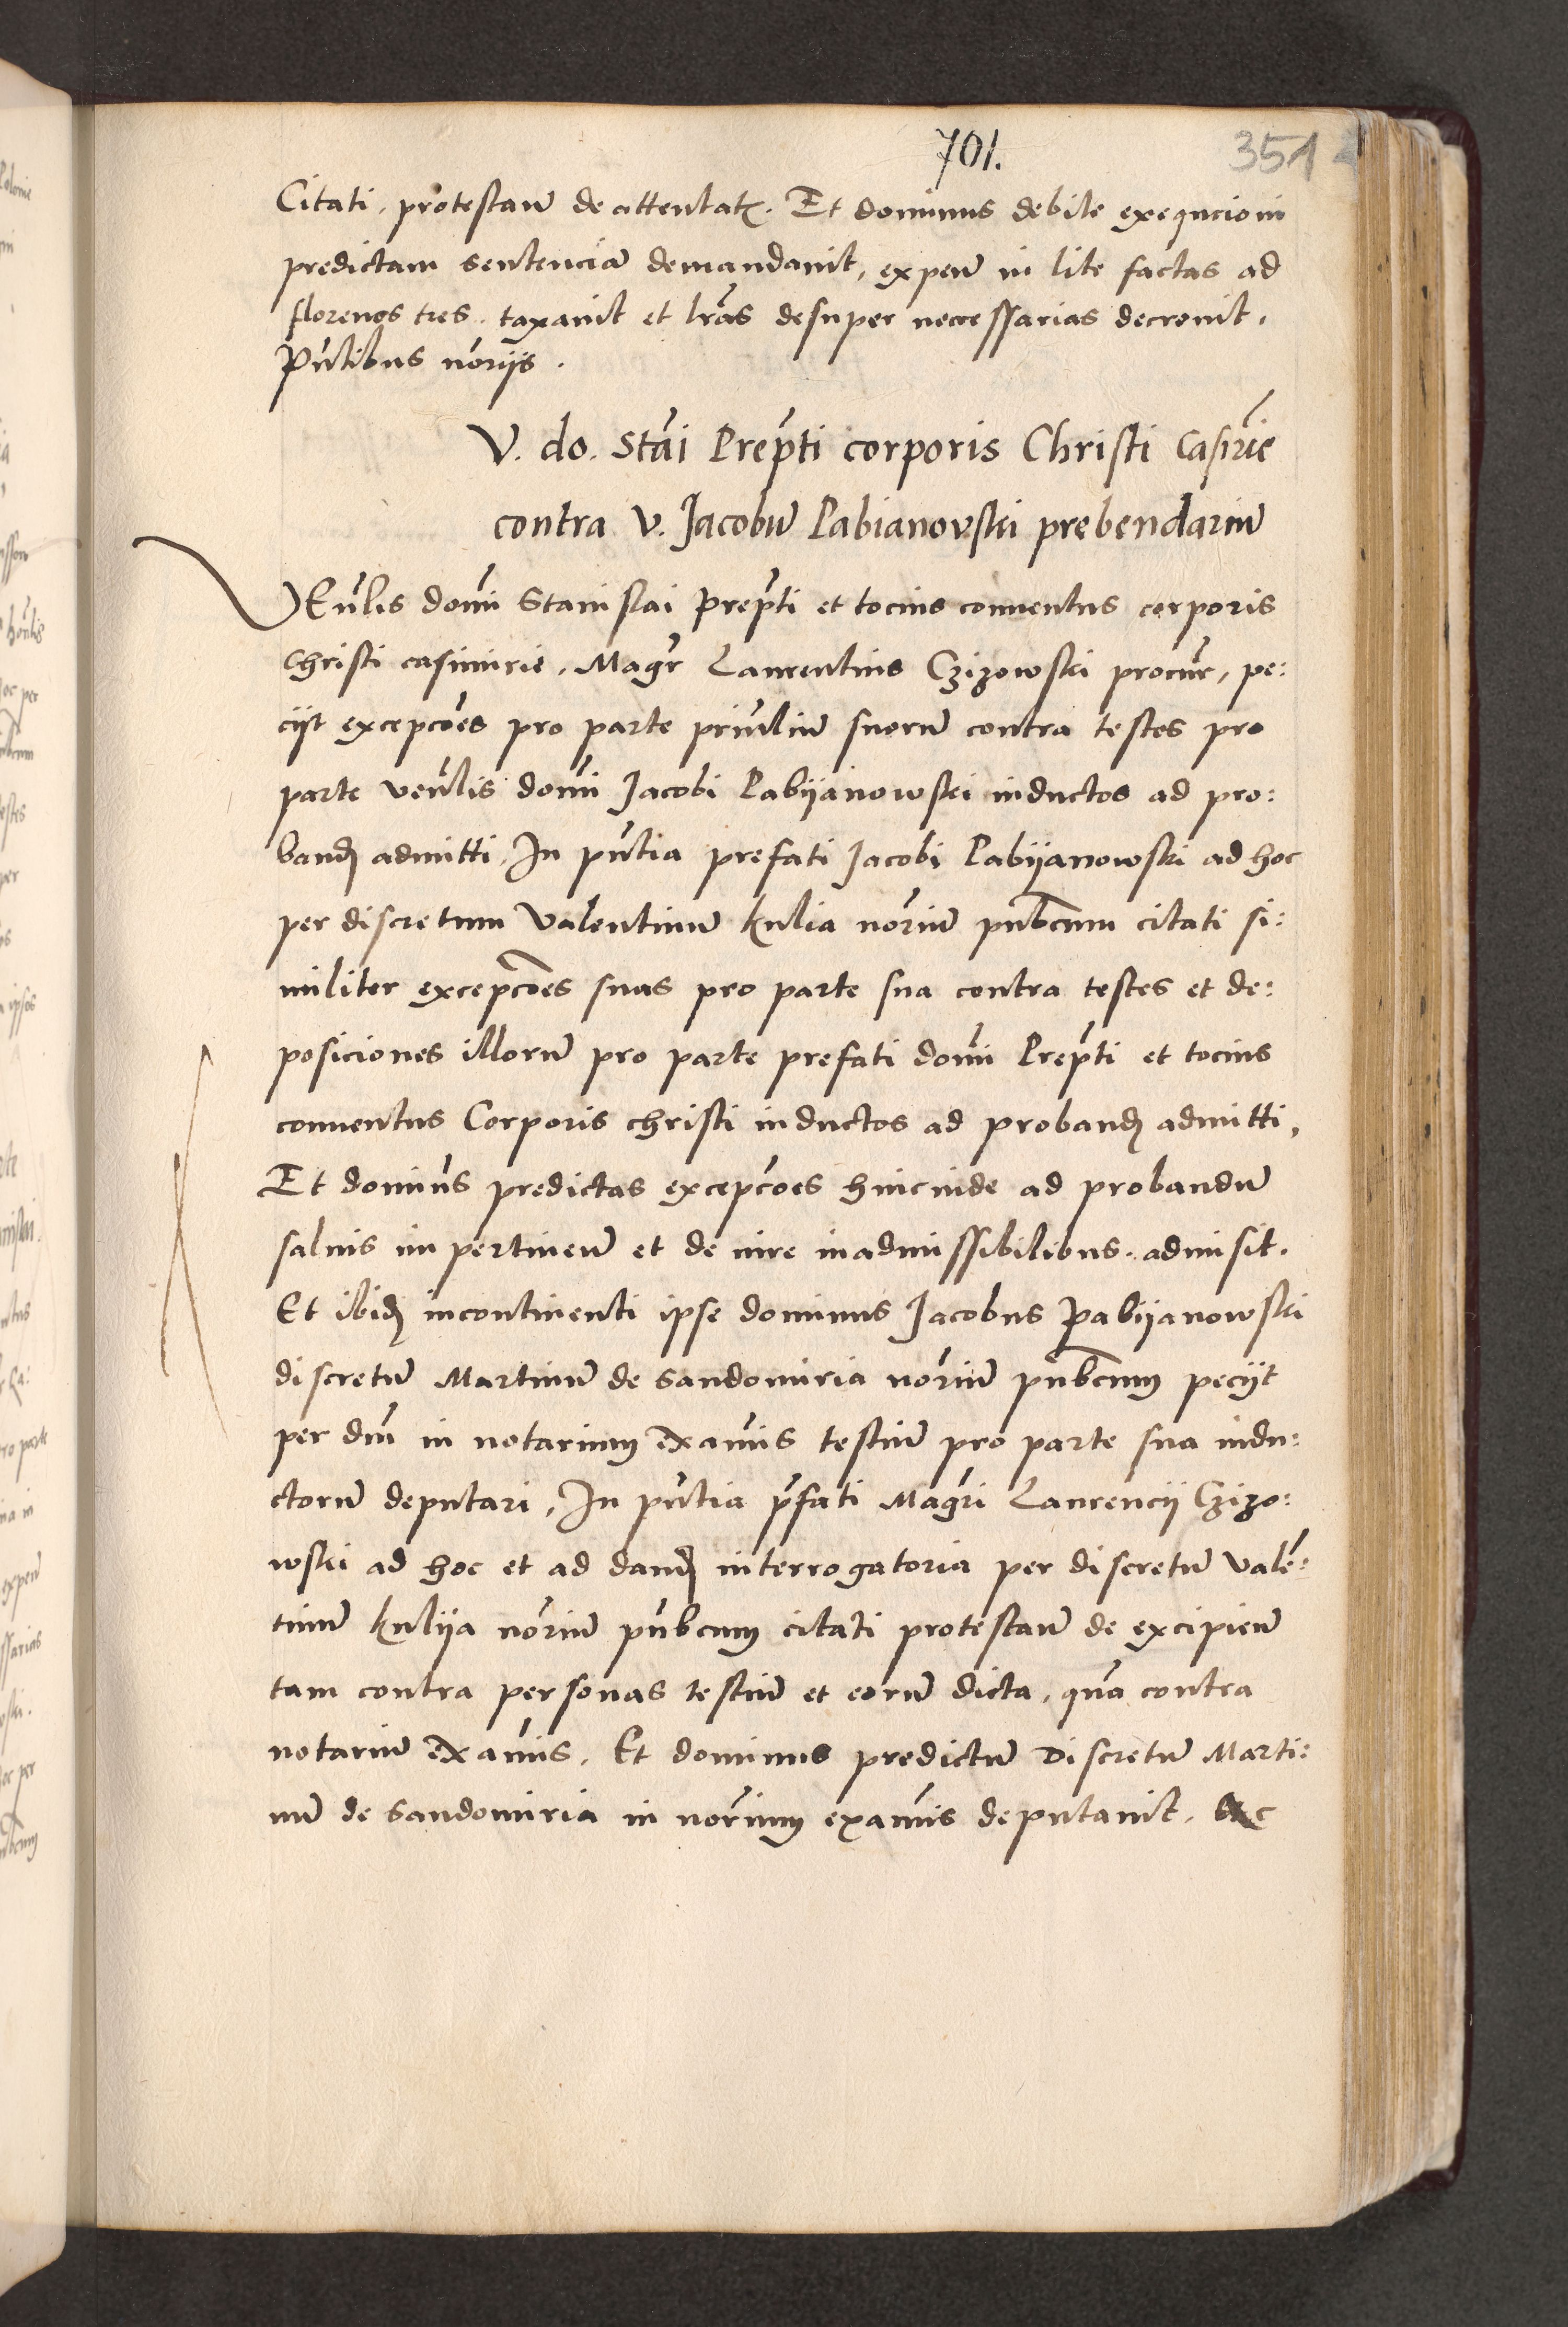 701.
351
Citati, protestañ de attentatꝫ. Et dominus debite exequcioni
predictam sentenciā demandauit, expeñ in lite factas ad
florenos tres. taxauit et lr̄as desuper necessarias decreuit.
Pn̄tibus nōrijs.
V. do. Stāi Prep̄ti corporis Christi Casīrie
contra V. Jacobū Pabianovski prebendariū
VEn̄lis dom̄i Stanislai Prep̄ti et tocius conuentus corporis
Christi casimirie, Magr̄ Laurentius Czizowski procūr, pe:
cijt excepcōes pro parte prin̄lium suorū contra testes pro
parte Ven̄lis dom̄i Jacobi Pabijanowski inductos ad pro:
band̄ admitti, In pn̄tia prefati Jacobi Pabijanowski ad hoc
per discretum Valentinū kulia nōriū pūbcum citati si:
militer excepcōes suas pro parte sua contra testes et de:
posiciones illorū pro parte prefati dom̄i Prep̄ti et tocius
conuentus Corporis christi inductos ad proband̄ admitti,
Et domin̄s predictas excepcōes hincinde ad probandū
saluis impertineñ et de iure inadmissibilibus. admisit.
Et ibid̄ incontinenti ipse dominus Jacobus Pabijanowski
discretū Martinū de Sandomiria nōriū pūbcum pecijt
per dm̄ in notarium exam̄is testiū pro parte sua indu:
ctorū deputari, In pn̄tia p̄fati Magr̄i Laurencij Czizo:
wski ad hoc et ad dand̄ interrogatoria per discretū Valē:
tinū kulija nōriū pūbcum citati protestañ de excipieñ
tam contra personas testiū et eorū dicta, quā contra
notariū exam̄is. Et dominus predictū Discretū Marti:
nū de Sandomiria in nōrium exam̄is deputauit. &c